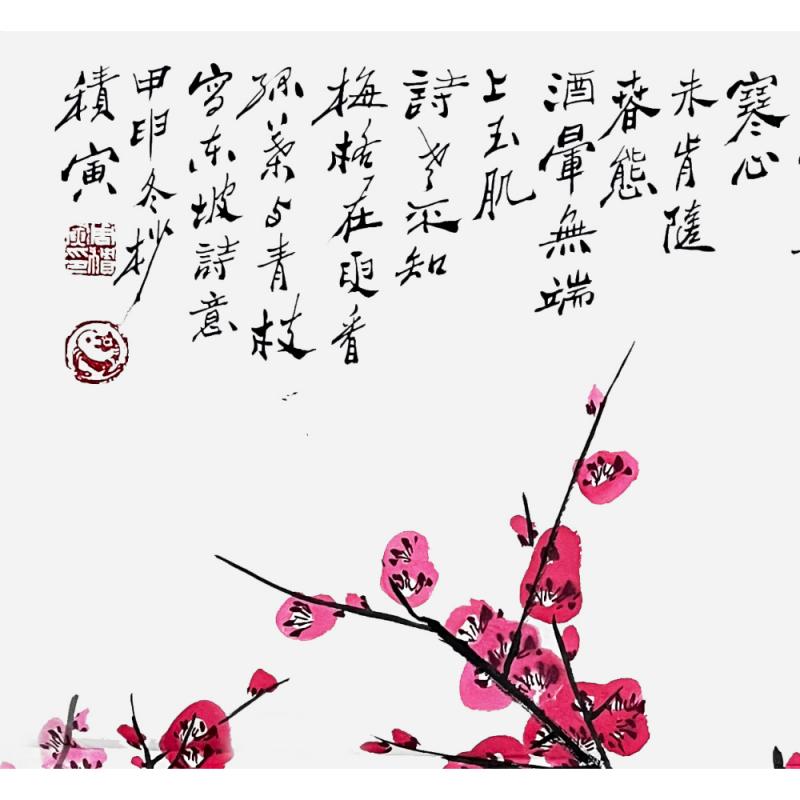 寒心
未肯隨
春態
酒暈無端
上玉肌
詩老不知
梅格在更看
綠葉与青枝
寫东坡詩意
甲申冬杪
積寅